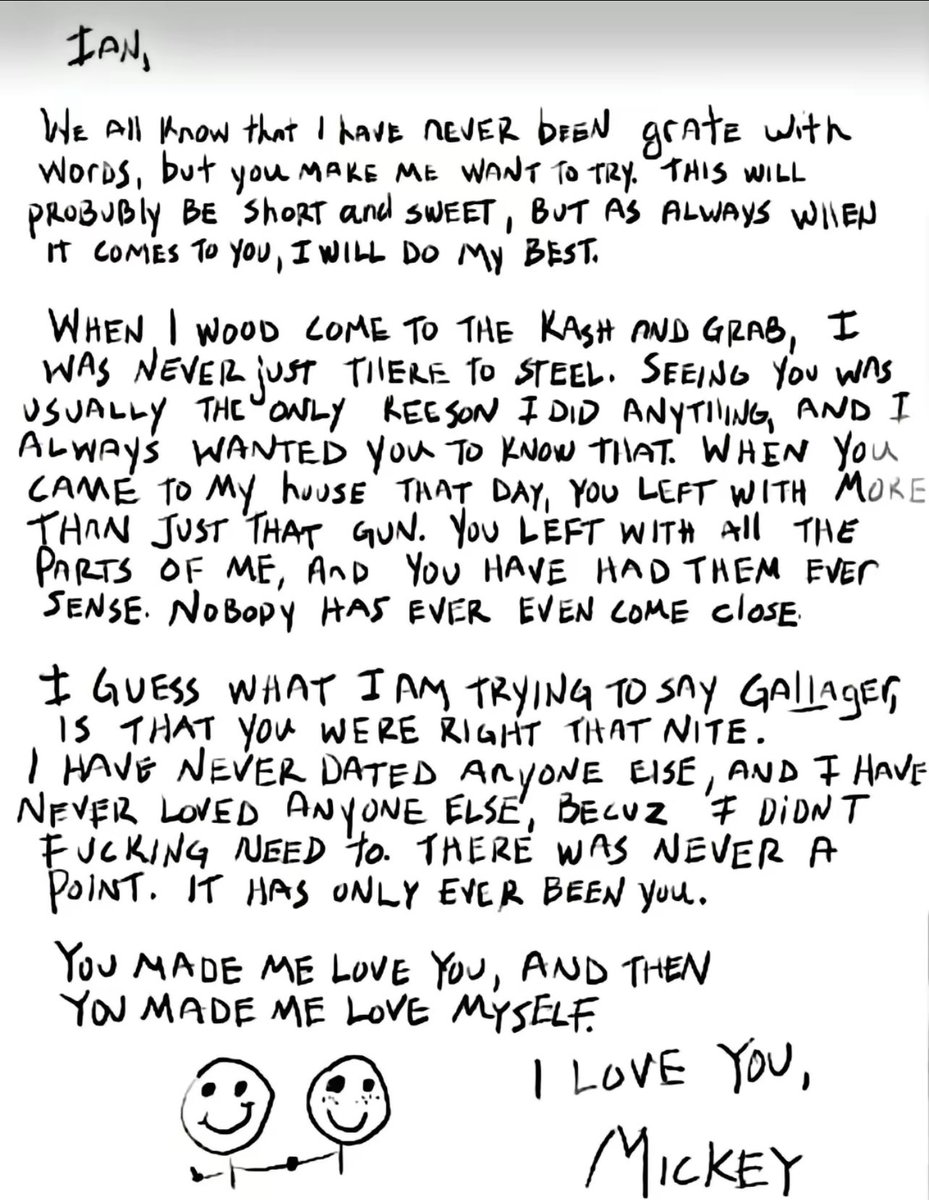 IAN,
WE All KNOW that I HAVE NEVER bEEN grATE with
WORDS, but you MAKE ME WANT TO TRY. THIS WILL
PROBUBly BE ShORT and SWEET, BUT AS ALWAYS WHEN
IT COMES TO YOU, I WILL DO My BEST.
WHEN I WOOD COME TO THE KASH AND GRAB, I
WAS NEVER juST THERE TO STEEL. SEEING YOU WAS
USUALLY THE ONLY REESON I DID ANYTHING, AND I
ALWAYS WANTED YOU TO KNOW THAT. WHEN YOU
CAME TO My hOUSE THAT DAY, YOU LEFT WITH MORE
THAN JUST THAT GUN. YOU LEFT WITH All THE
PARTS OF ME, AnD YOU HAVE HAD THEM EVEr
SENSE. NOBODY HAS EVER EVEN COME ClOSE.
I GUESS WHAT I AM TRYING TO SAY GAllAgEr,
IS THAT YOU WERE RIGHT THAT NITE.
I HAVE NEVER DATED AnyONE ElSE, AND I HAVE
NEVER LOVED ANYONE ELSE, BECUZ I DiDNT
FUCKING NEED to. THERE WAS NEVER A
POINT. IT HAS ONLY EVER BEEN YOU.
YOU MADE ME LOVE YOU, AND THEN
YOU MADE ME LOVE MYSELF.
I LOVE YOU,
MICKEY